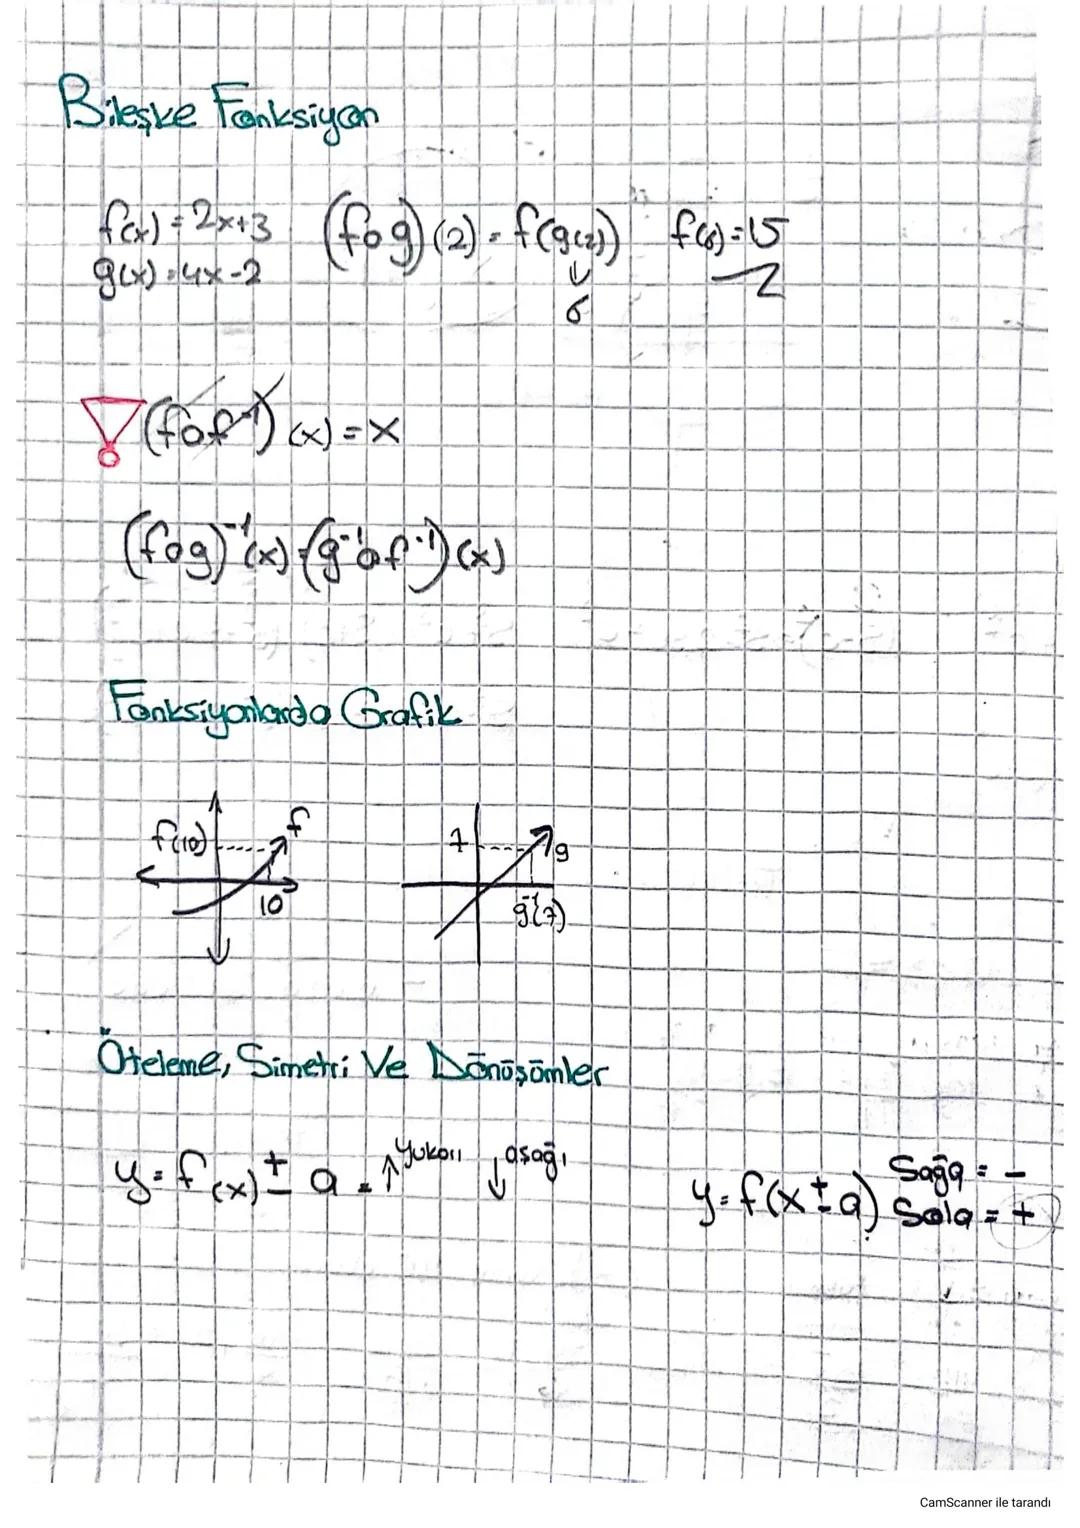 Bileşke Fonksiyon
f(x) = 2x+3
g(x) = 4x-2
(fog)(2) = f(g(2)) f(6)=15
↓
6
(fof⁻¹)(x) = x
(fog)⁻¹(x) = (g⁻¹of⁻¹)(x)
Fonksiyonlarda Grafik
f(10) f
10
7 g
g⁻¹(7)
Öteleme, Simetri Ve Dönüşümler
y = f(x) ± a = ↑ yukarı ↓ aşağı
y = f(x ± a) Sağa = -
Sola = +
CamScanner ile tarandı